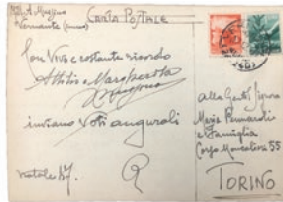 A. Mugno
Vernante (Cuneo)
CARTA POSTALE
Con Vivo e costante ricordo
Attilio e Margherita
Mugno
inviano Voti augurali
Natale 47.
Alla Gent. Signora
Maria
e Famiglia
Corso Moncalieri 55
TORINO